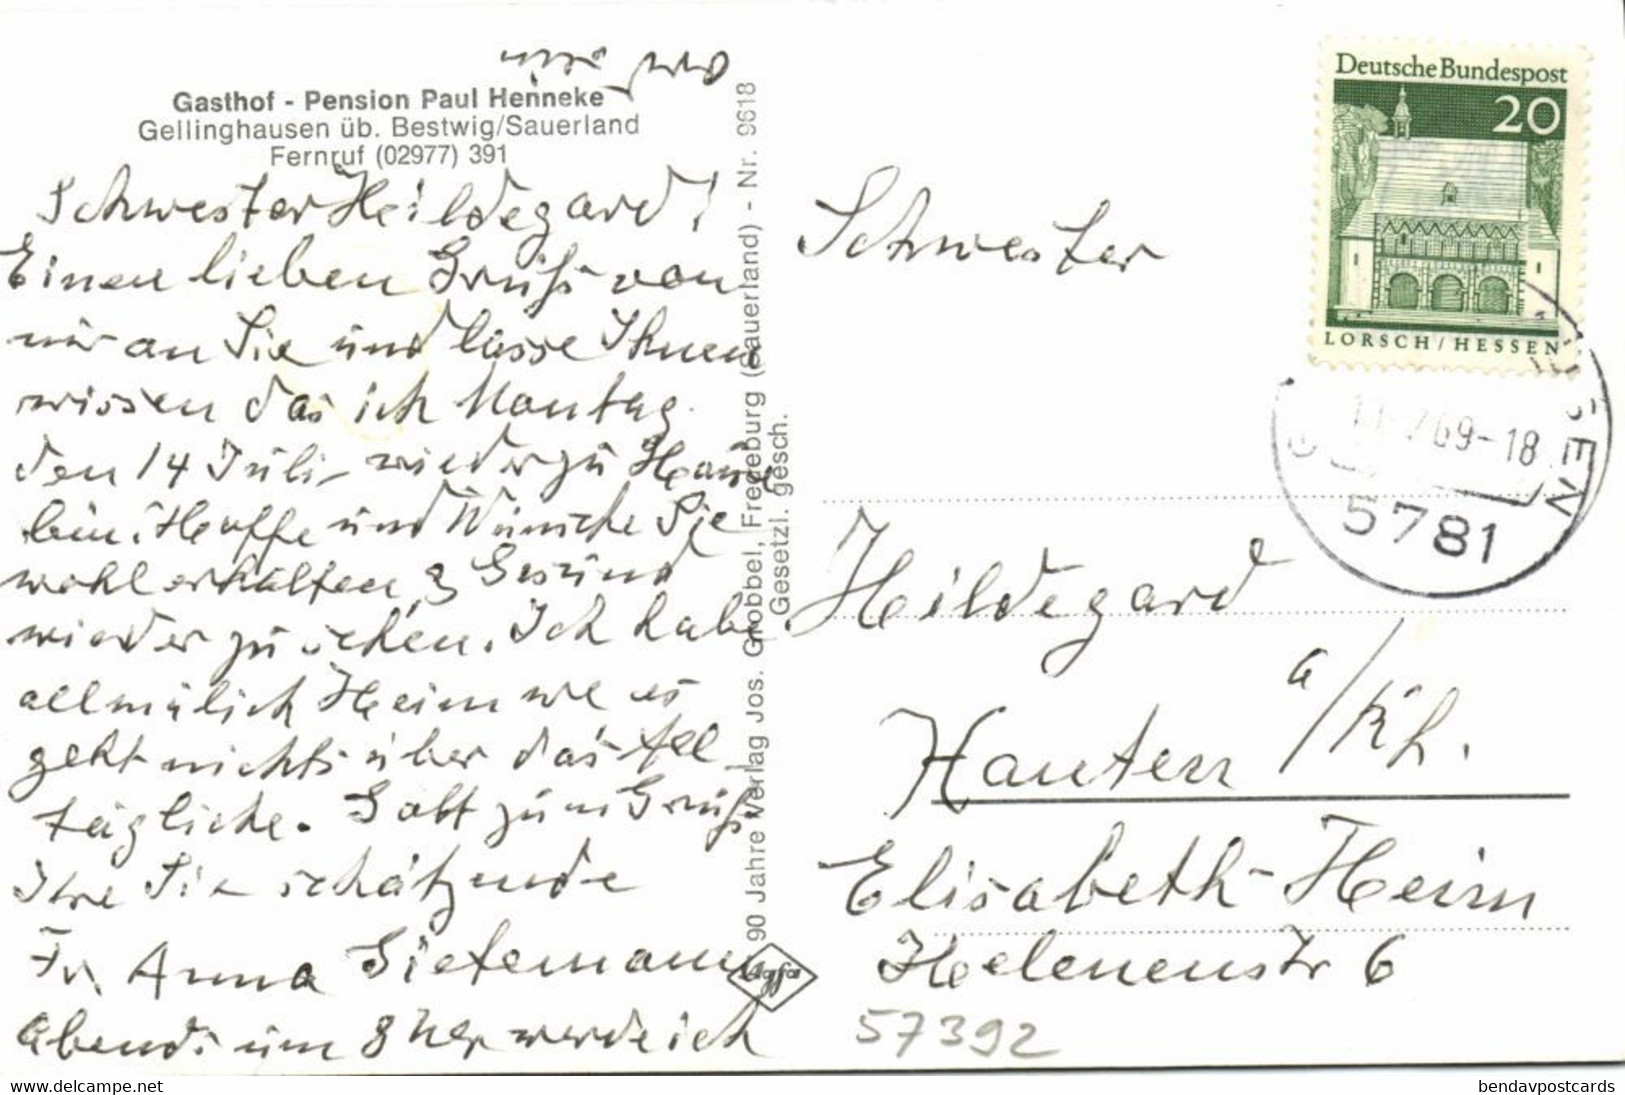 Gasthof - Pension Paul Henneke
Gellinghausen üb. Bestwig/Sauerland
Fernruf (02977) 391
Schwester Heildegard!
Einen lieben Gruß von
mir an Sie und lasse Ihnen
wissen das ich Montag
den 14 Juli wieder zu Hause
bin. Hoffe und Wünsche Sie
wohlerhalten, & Gesund
wieder zu sehen. Ich habe
allmälich Heimwe es
geht nichts über das All
tägliche. Gott zum Gruß
Ihre Sie schätzende
Fr Anna Sietemann
Abends um 8 Uhr werde ich
90 Jahre Verlag Jos. Grobbel, Fredeburg (Sauerland) - Nr. 9618
Gesetzl. gesch.
Agfa
Deutsche Bundespost
20
LORSCH/HESSEN
69-18
5781
Schwester
Heildegard
Xanten a/Rh.
Elisabeth-Heim
Helenenstr 6
57392
Ansichtskarten / Postcards
bendavpostcards